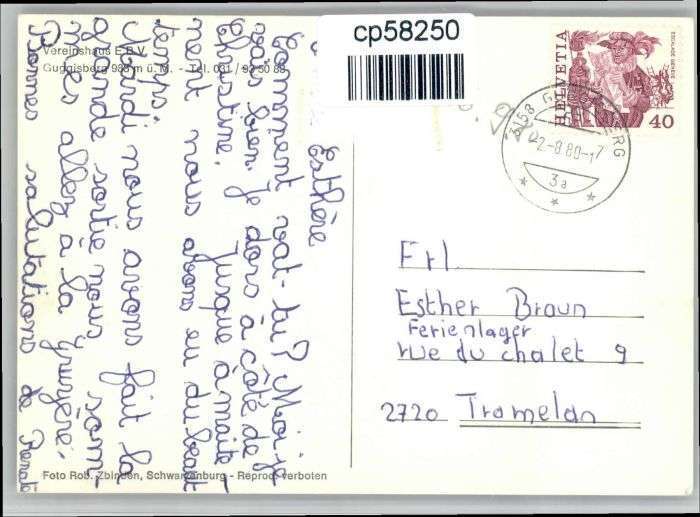 Vereinshaus E.B.V.
Guggisberg 988 m ü. M. - Tel. 031 / 93 50 85
cp58250
HELVETIA
ESCALADE GENEVE
40
3158 GUGGISBERG
-2-8.80-17
3a
Esthère
Comment vat-tu? Moi je
vais bien. Je dors à côté de
Christine. Jusque à mainte
ment nous avons eu du beau
temps.
Mardi nous avons fait la
grande sortie nous
mes allez à la Gruyère.
Bonnes salutations de Renate
Frl.
Esther Braun
Ferienlager
rue du chalet 9
2720 Tramelan
Foto Rob. Zbinden, Schwarzenburg - Reprod. verboten